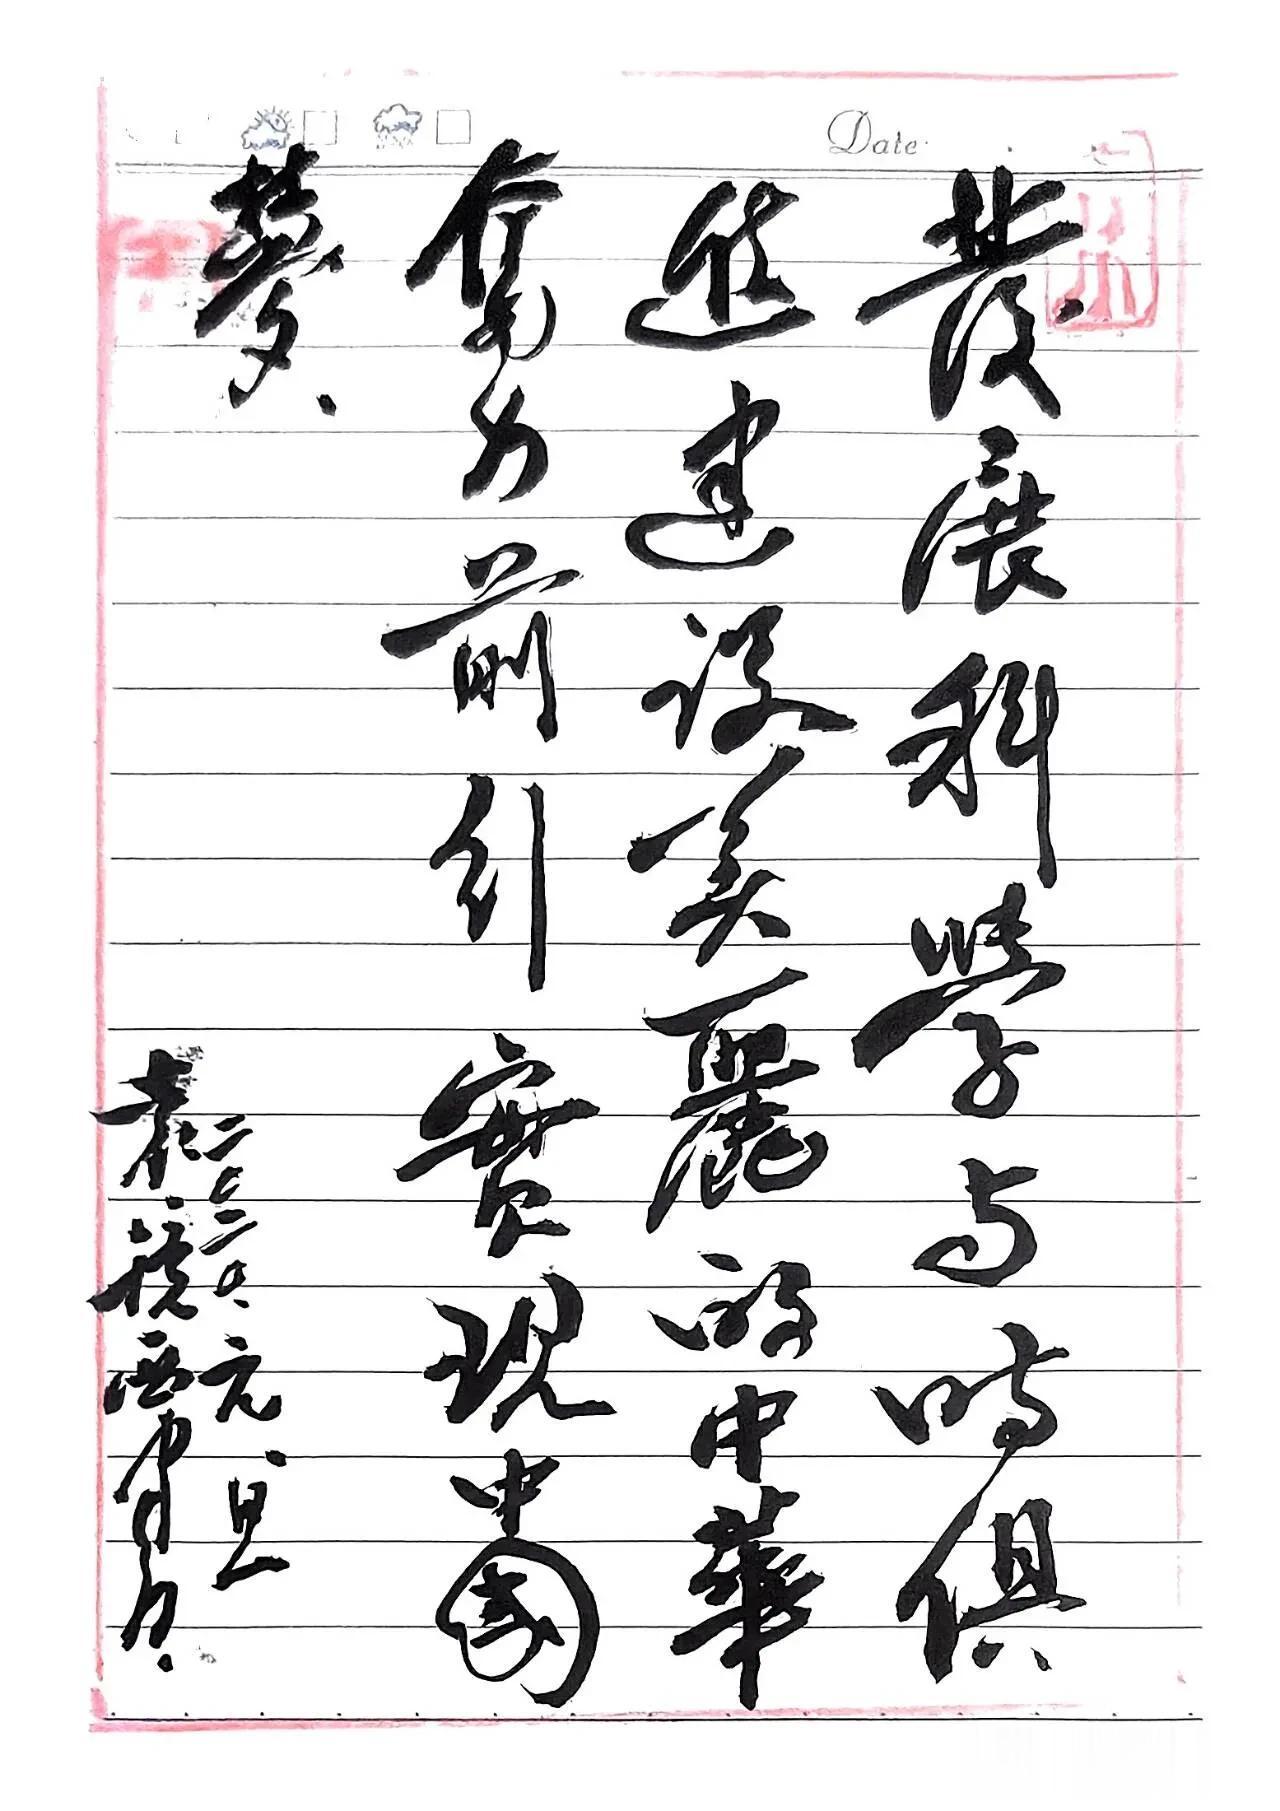 發展科學与時俱
進建设美麗的中華
奮力前行實現中國
夢
二〇二〇元旦
袁
Date